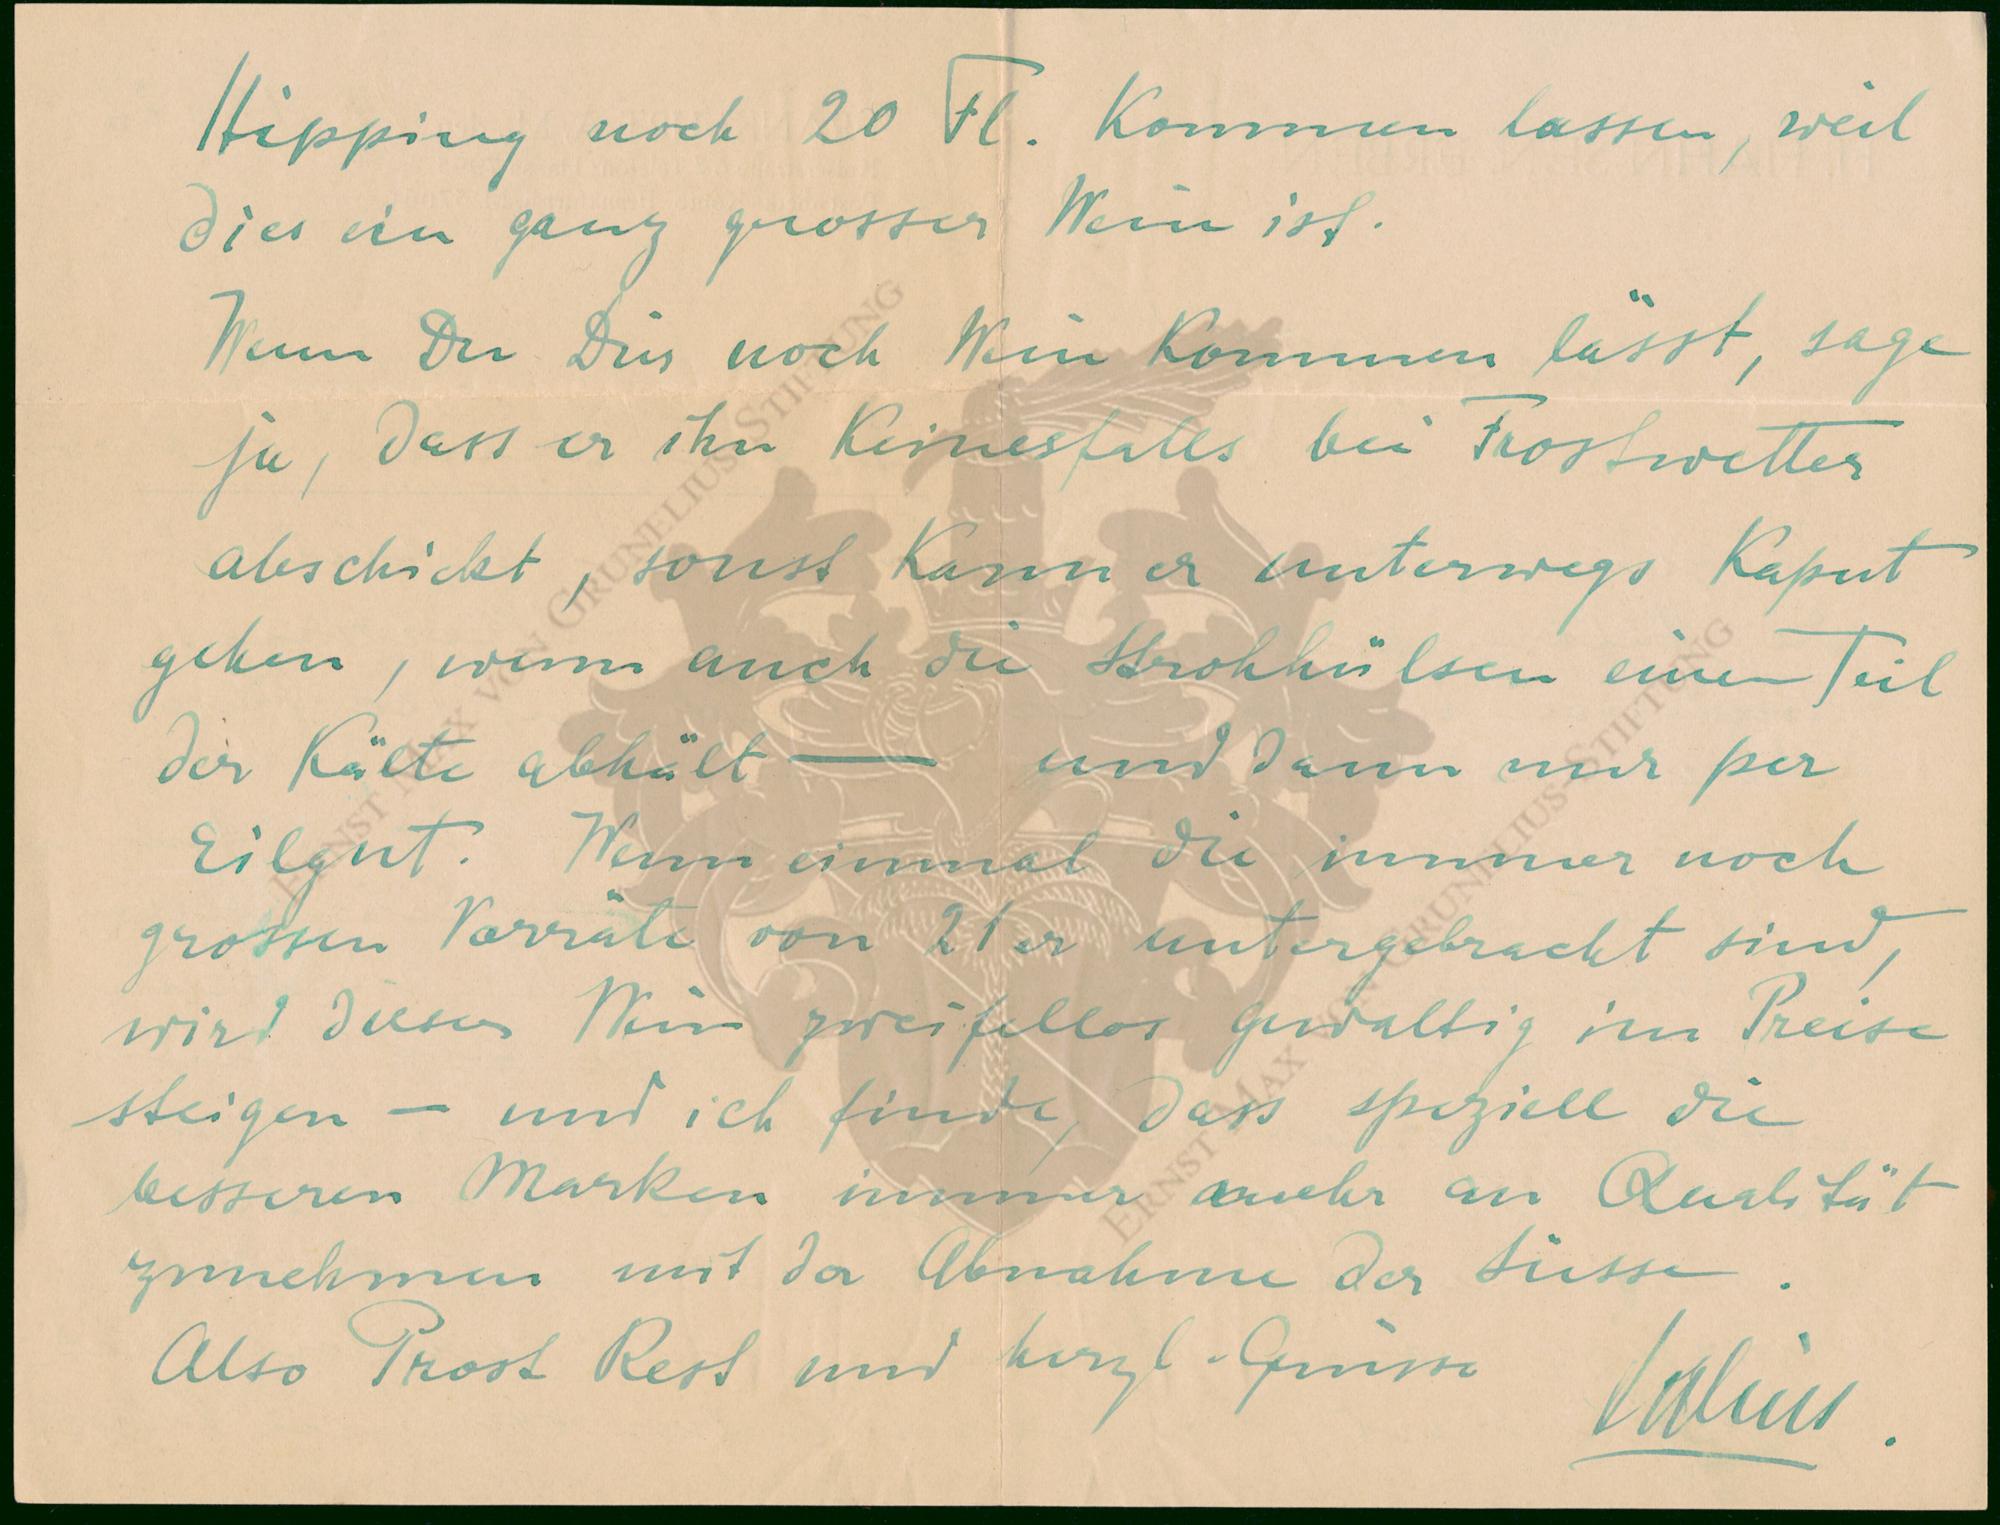 Hipping noch 20 Fl. Kommen lassen, weil
dies ein ganz grosser Wein ist.
Wenn Du Dir noch Wein Kommen lässt, sage
ja, dass er ihn Keinesfalls bei Frostwetter
abschickt, sonst Kann er unterwegs Kaput
gehen, wenn auch die Strohhülsen einen Teil
der Kälte abhält — und dann nur per
Eilgut. Wenn einmal die immer noch
grossen Vorräte von 21er untergebracht sind,
wird dieser Wein zweifellos gewaltig im Preise
steigen — und ich finde, dass speziell die
besseren Marken immer mehr an Qualität
zunehmen mit der Abnahme der Süsse.
Also Prost Rest und herzl. Grüsse
ERNST MAX VON GRUNELIUS-STIFTUNG
ERNST MAX VON GRUNELIUS-STIFTUNG